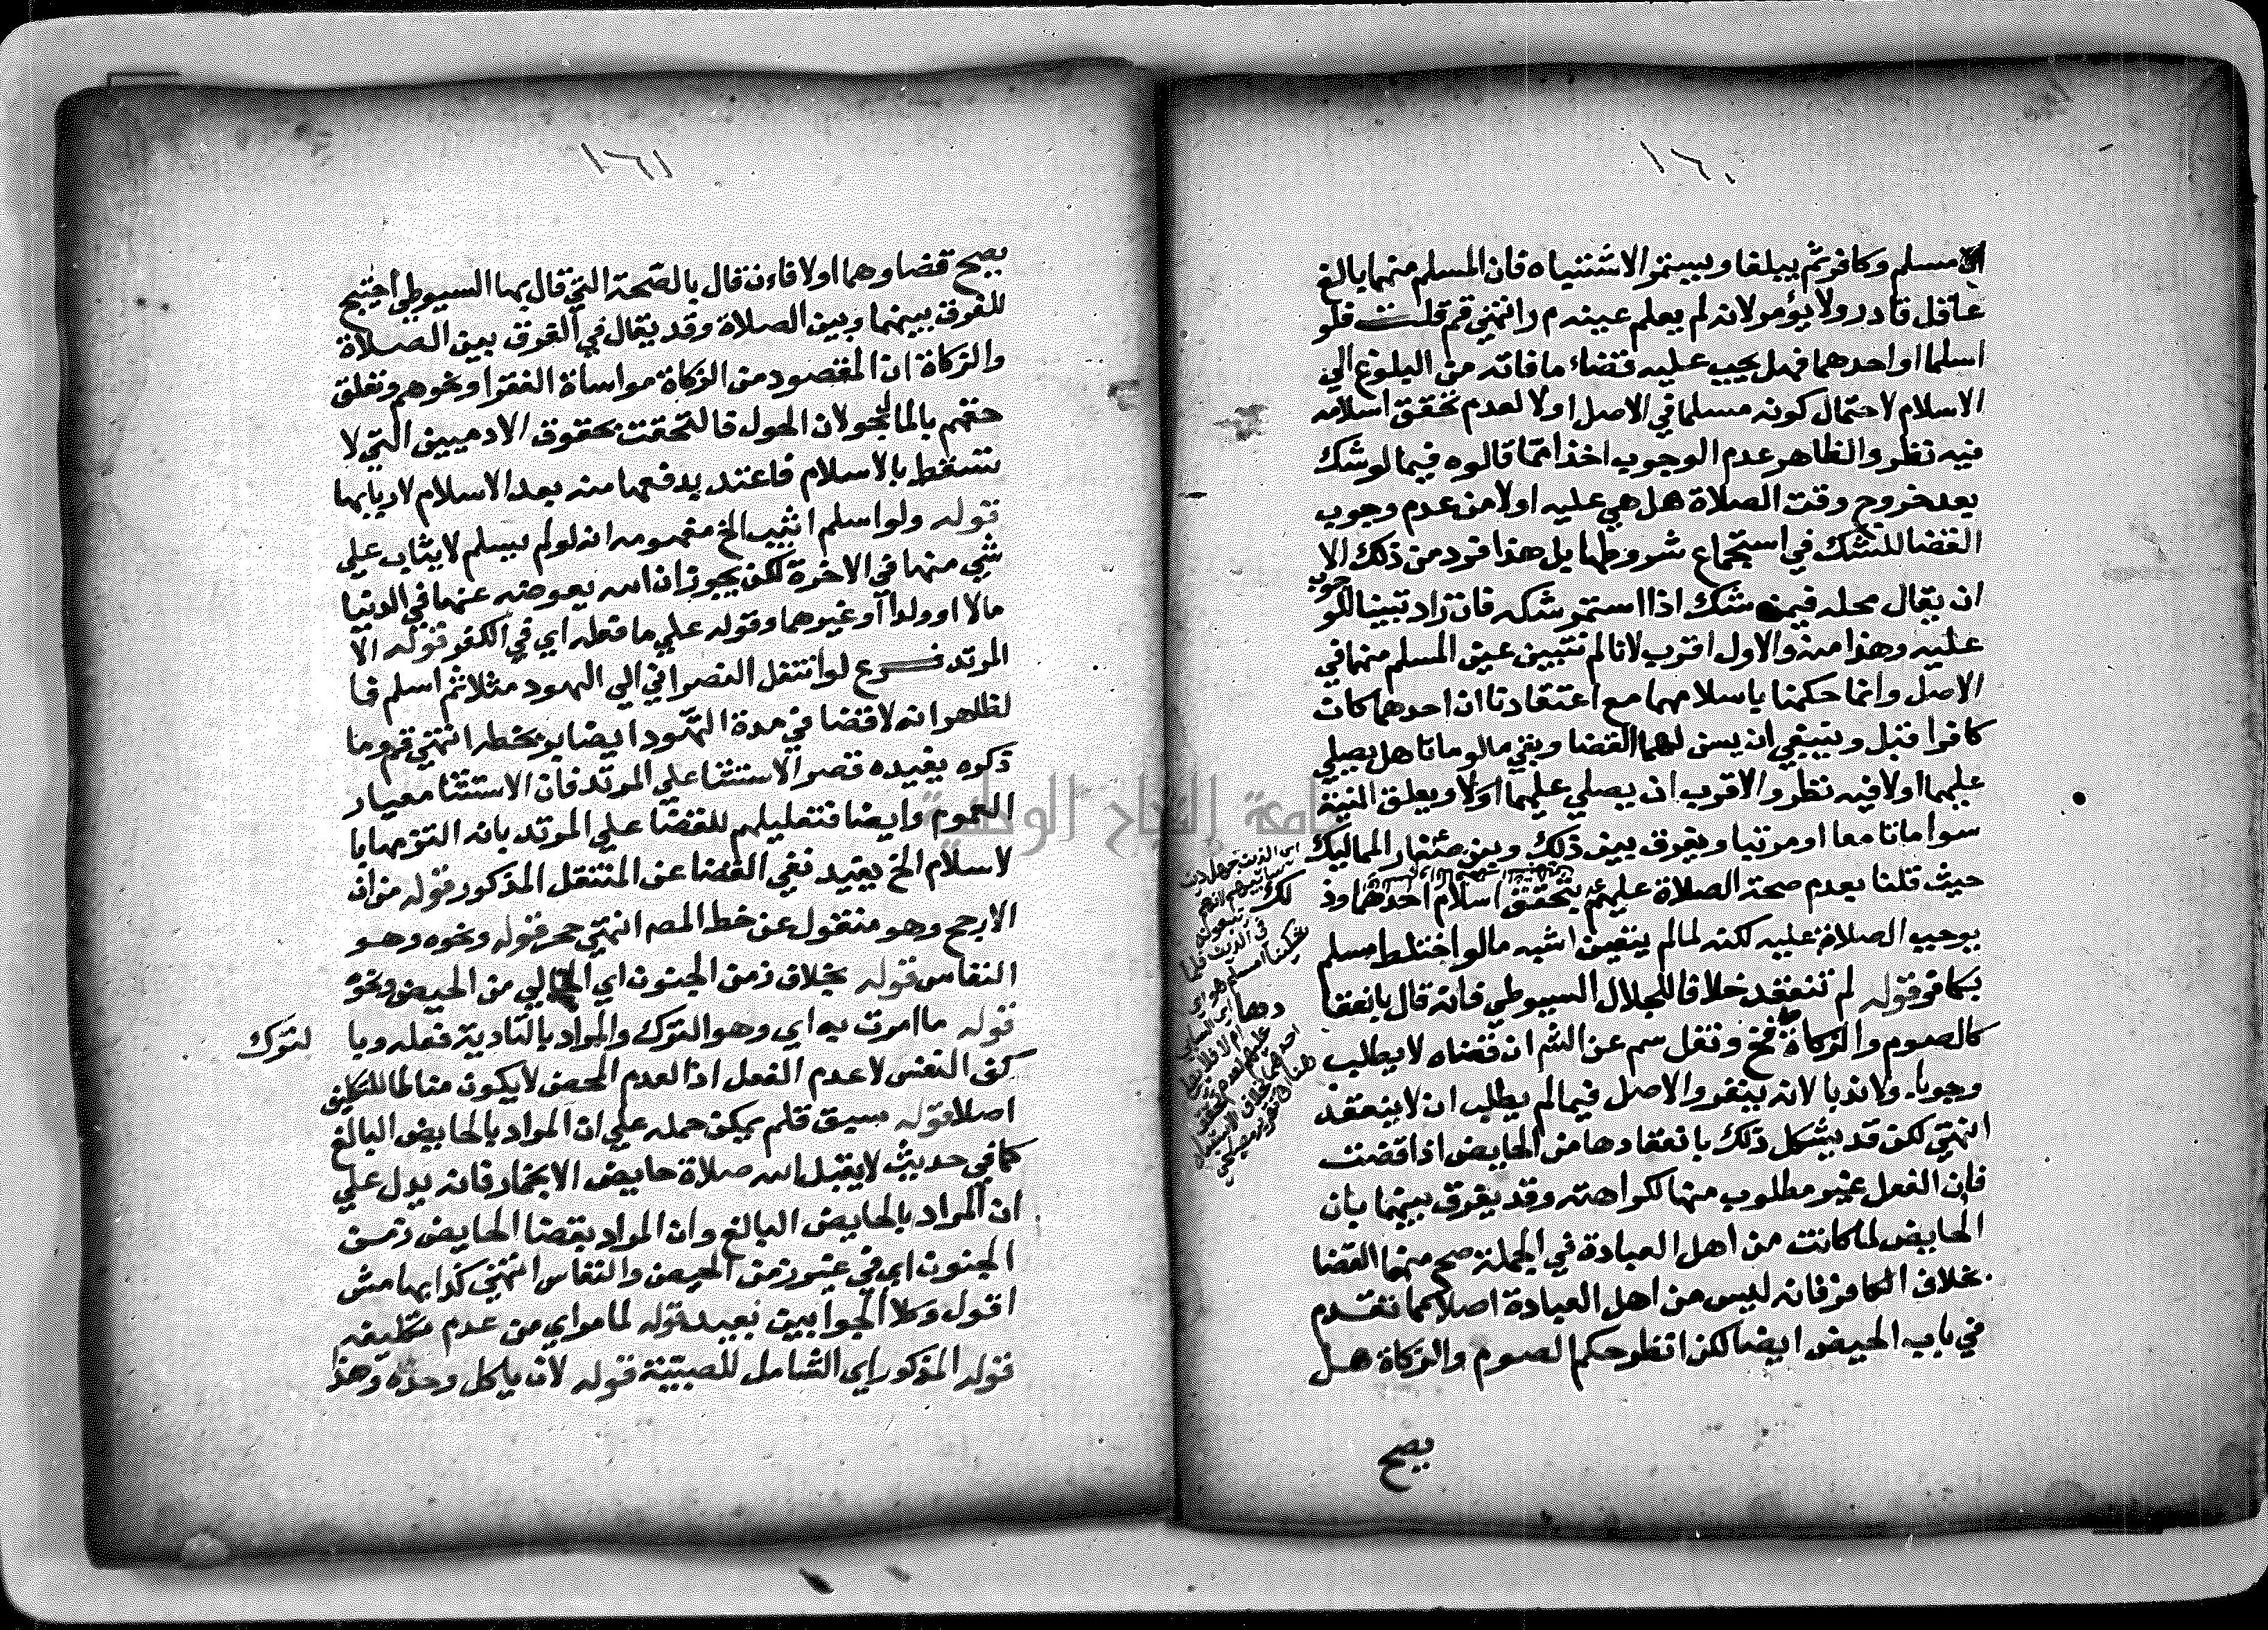 ١٦٠
مسلم وكافر ثم يبلغا ويستمر الاشتباه فان المسلم منهما بالغ
عاقل قادر ولا يؤمر لانه لم يعلم عينه م ر انتهي قم قلت فلو
اسلما او احدهما فهل يجب عليه قضاء ما فاته من البلوغ الي
الاسلام لاحتمال كونه مسلما في الاصل او لا لعدم تحقق اسلامه
فيه نظر والظاهر عدم الوجوب اخذا مما قالوه فيما لو شك
بعد خروج وقت الصلاة هل هي عليه اولا من عدم وجوب
القضا للشك في استجماع شروطها بل هذا فرد من ذلك الا
ان يقال محله فيمن شك اذا استمر شكه فان زاد تبينا للوجوب
عليه وهذا منه والاول اقرب لانا لم نتبين عين المسلم منهما في
الاصل وانما حكمنا باسلامهما مع اعتقادنا ان احدهما كان
كافرا قبل وينبغي ان يسن لهما القضا وبقي ما لو ماتا هل يصلي
عليهما اولا فيه نظر والاقرب ان يصلي عليهما اولا ويعلق النية
سوا ماتا معا او مرتبا ويفرق بين ذلك وبين صغار المماليك
حيث قلنا بعدم صحة الصلاة عليهم بتحقق اسلام احدهما وذلك
يوجب الصلاة عليه لكنه لما لم يتعين اشبه ما لو اختلط مسلم
بكافر قوله لم تنعقد خلافا للجلال السيوطي فانه قال بانعقادها
كالصوم والزكاة مخ ونقل سم عن الشم ان قضاه لا يطلب
وجوبا ولا ندبا لانه ينفر والاصل فيما لم يطلب ان لا ينعقد
انتهي لكن قد يشكل ذلك بانعقادها من الحايض اذا قضت
فان الفعل غير مطلوب منها لكراهته وقد يفرق بينهما بان
الحايض لما كانت من اهل العبادة في الجملة صح منها القضا
بخلاف الكافر فانه ليس من اهل العبادة اصلا كما تقدم
في باب الحيض ايضا لكن انظر حكم الصوم والزكاة هل
يصح
١٦١
يصح قضاوهما اولا فان قال بالصحة التي قال بها السيوطي احتيج
للفرق بينهما وبين الصلاة وقد يقال في الفرق بين الصلاة
والزكاة ان المقصود من الزكاة مواساة الفقرا ونحوهم وتعلق
حقهم بالمال بحولان الحول فالتحقت بحقوق الادميين التي لا
تسقط بالاسلام فاعتد بدفعها منه بعد الاسلام لاربابها
قوله ولو اسلم اثيب الخ مفهومه انه لو لم يسلم لا يثاب علي
شي منها في الاخرة لكن يجوز ان الله يعوضه عنها في الدنيا
مالا او ولدا او غيرهما وقوله علي ما فعله اي في الكفر قوله الا
المرتد فرع لو انتقل النصراني الي اليهود مثلا ثم اسلم فا
لظاهر انه لا قضا في مدة التهود ايضا بر بخطه انتهي قم وما
ذكره يفيده قصر الاستثنا علي المرتد فان الاستثنا معيار
العموم وايضا فتعليلهم للقضا علي المرتد بانه التزمها با
لاسلام الخ يفيد نفي القضا عن المنتقل المذكور قوله من ان
الارجح وهو منقول عن خط المصم انتهي حجر قوله ونحوه وهو
النفاس قوله بخلاف زمن الجنون اي الخالي من الحيض ونحو
قوله ما امرت به اي وهو الترك والمراد بالتادية فعله وبا لترك
كف النفس لا عدم الفعل اذ العدم المحض لا يكون مناطا للتكليف
اصلا قوله سبق قلم يمكن حمله علي ان المراد بالحايض البالغ
كما في حديث لا يقبل الله صلاة حايض الا بخمار فانه يدل علي
ان المراد بالحايض البالغ وان المراد بقضا الحايض زمن
الجنون اي في غير زمن الحيض والنفاس انتهي كذا بهامش
اقول وكلا الجوابين بعيد قوله لما مر اي من عدم تكليفه
قوله المذكور اي الشامل للصبية قوله لان ياكل وحده وهذا